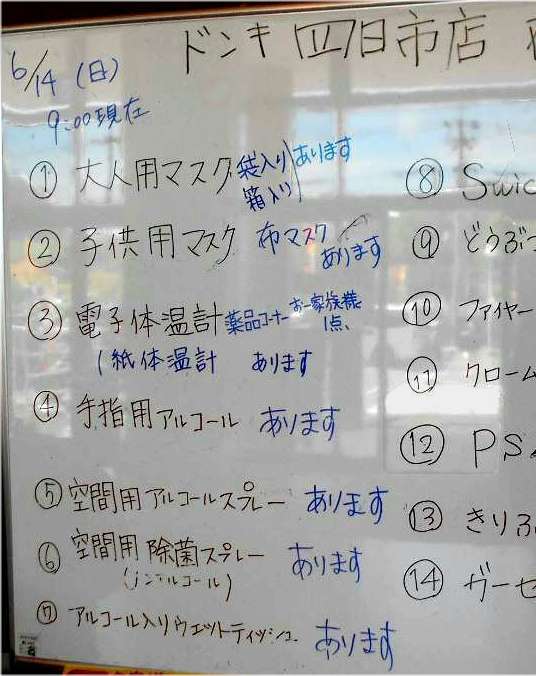 ドンキ 四日市店
6/14(日)
9:00現在
① 大人用マスク 袋入り 箱入り あります
② 子供用マスク 布マスク あります
③ 電子体温計 薬品コーナー お一家族様 1点、
紙体温計 あります
④ 手指用アルコール あります
⑤ 空間用アルコールスプレー あります
⑥ 空間用 除菌スプレー あります
(ノンアルコール)
⑦ アルコール入りウェットティッシュ あります
⑧ Swic
⑨ どうぶつ
⑩ ファイヤー
⑪ クローム
⑫ PS
⑬ きりふ
⑭ ガーゼ